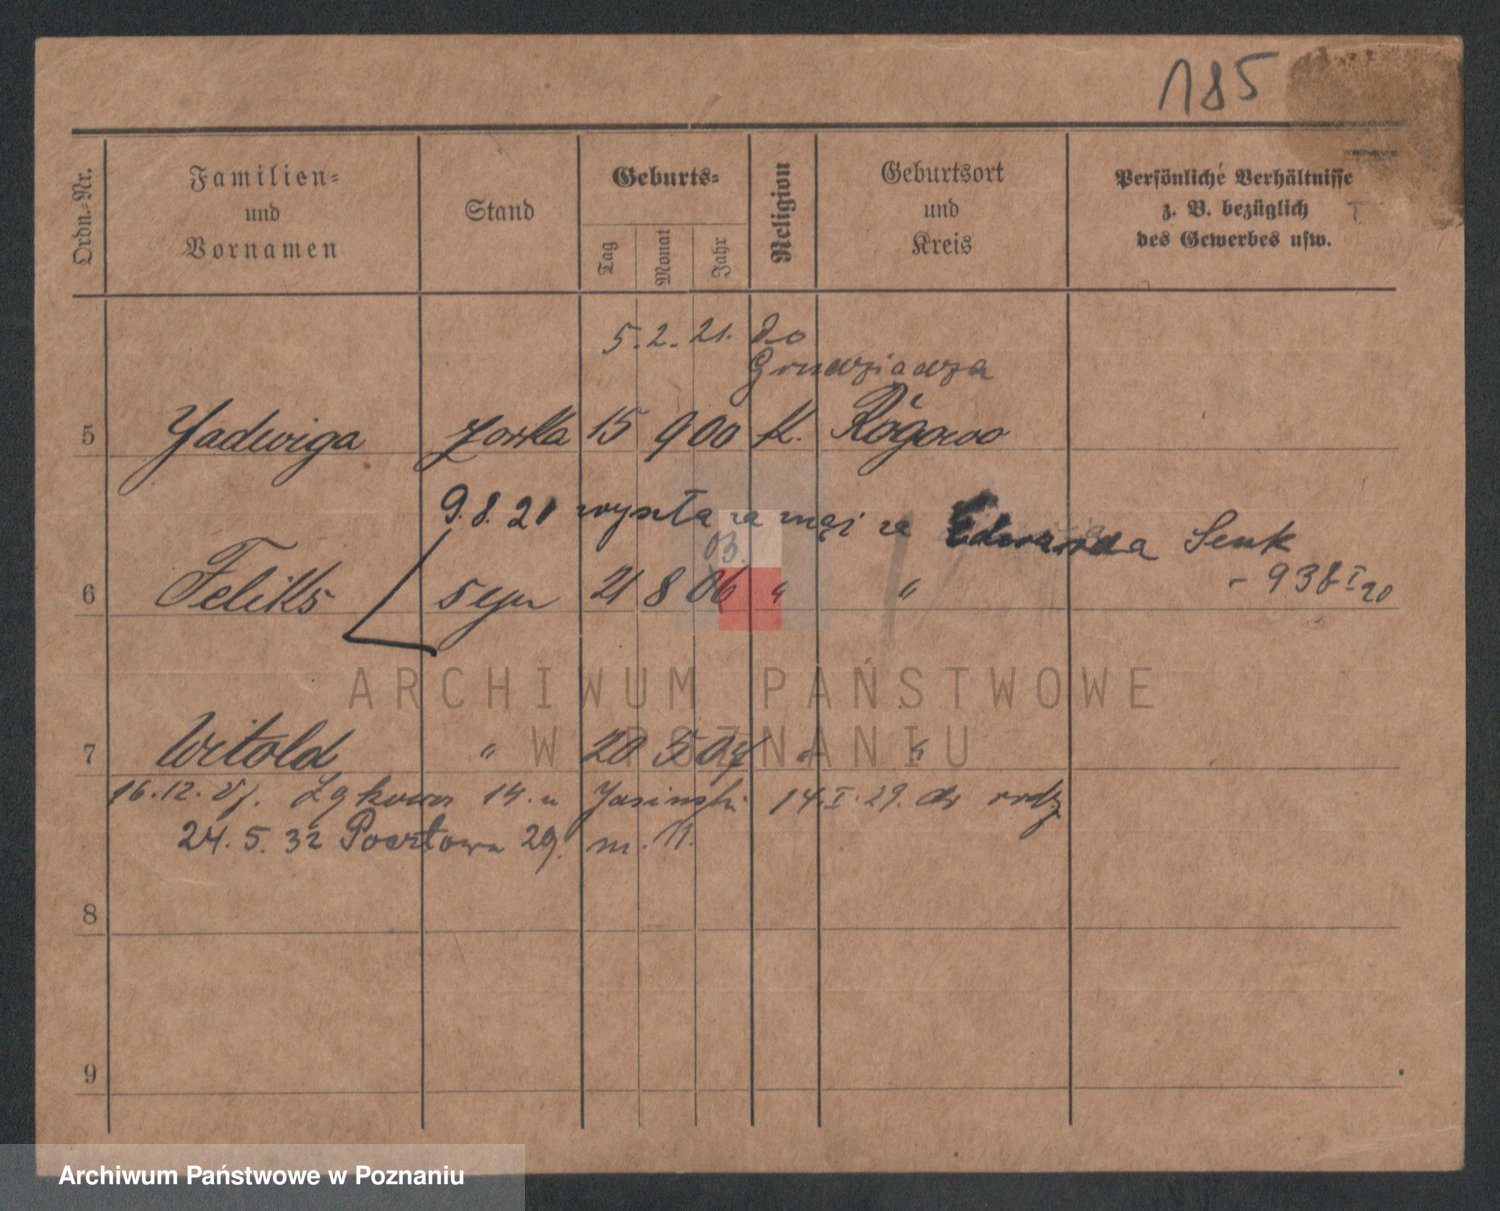 185
Ordn.-Nr.
Familien-
und
Vornamen
Stand
Geburts-
Tag
Monat
Jahr
Religion
Geburtsort
und
Kreis
Persönliche Verhältnisse
z. B. bezüglich
des Gewerbes usw.
5. 2. 21. do
Grudziadza
5 Jadwiga 15 9 00 k. Rogowo
9. 8. 20 wyszła za mąż za Edwarda Senk
03.
6 Feliks syn 21 8 06 " "
- 938 I 20
ARCHIWUM PAŃSTWOWE
W POZNANIU
7 Witold " 20 5 04 " "
16. 12. Łąkowa 14. u Jasinski 14. I. 29. do
24. 5. 32 Pocztowa 29. m. 11.
8
9
Archiwum Państwowe w Poznaniu